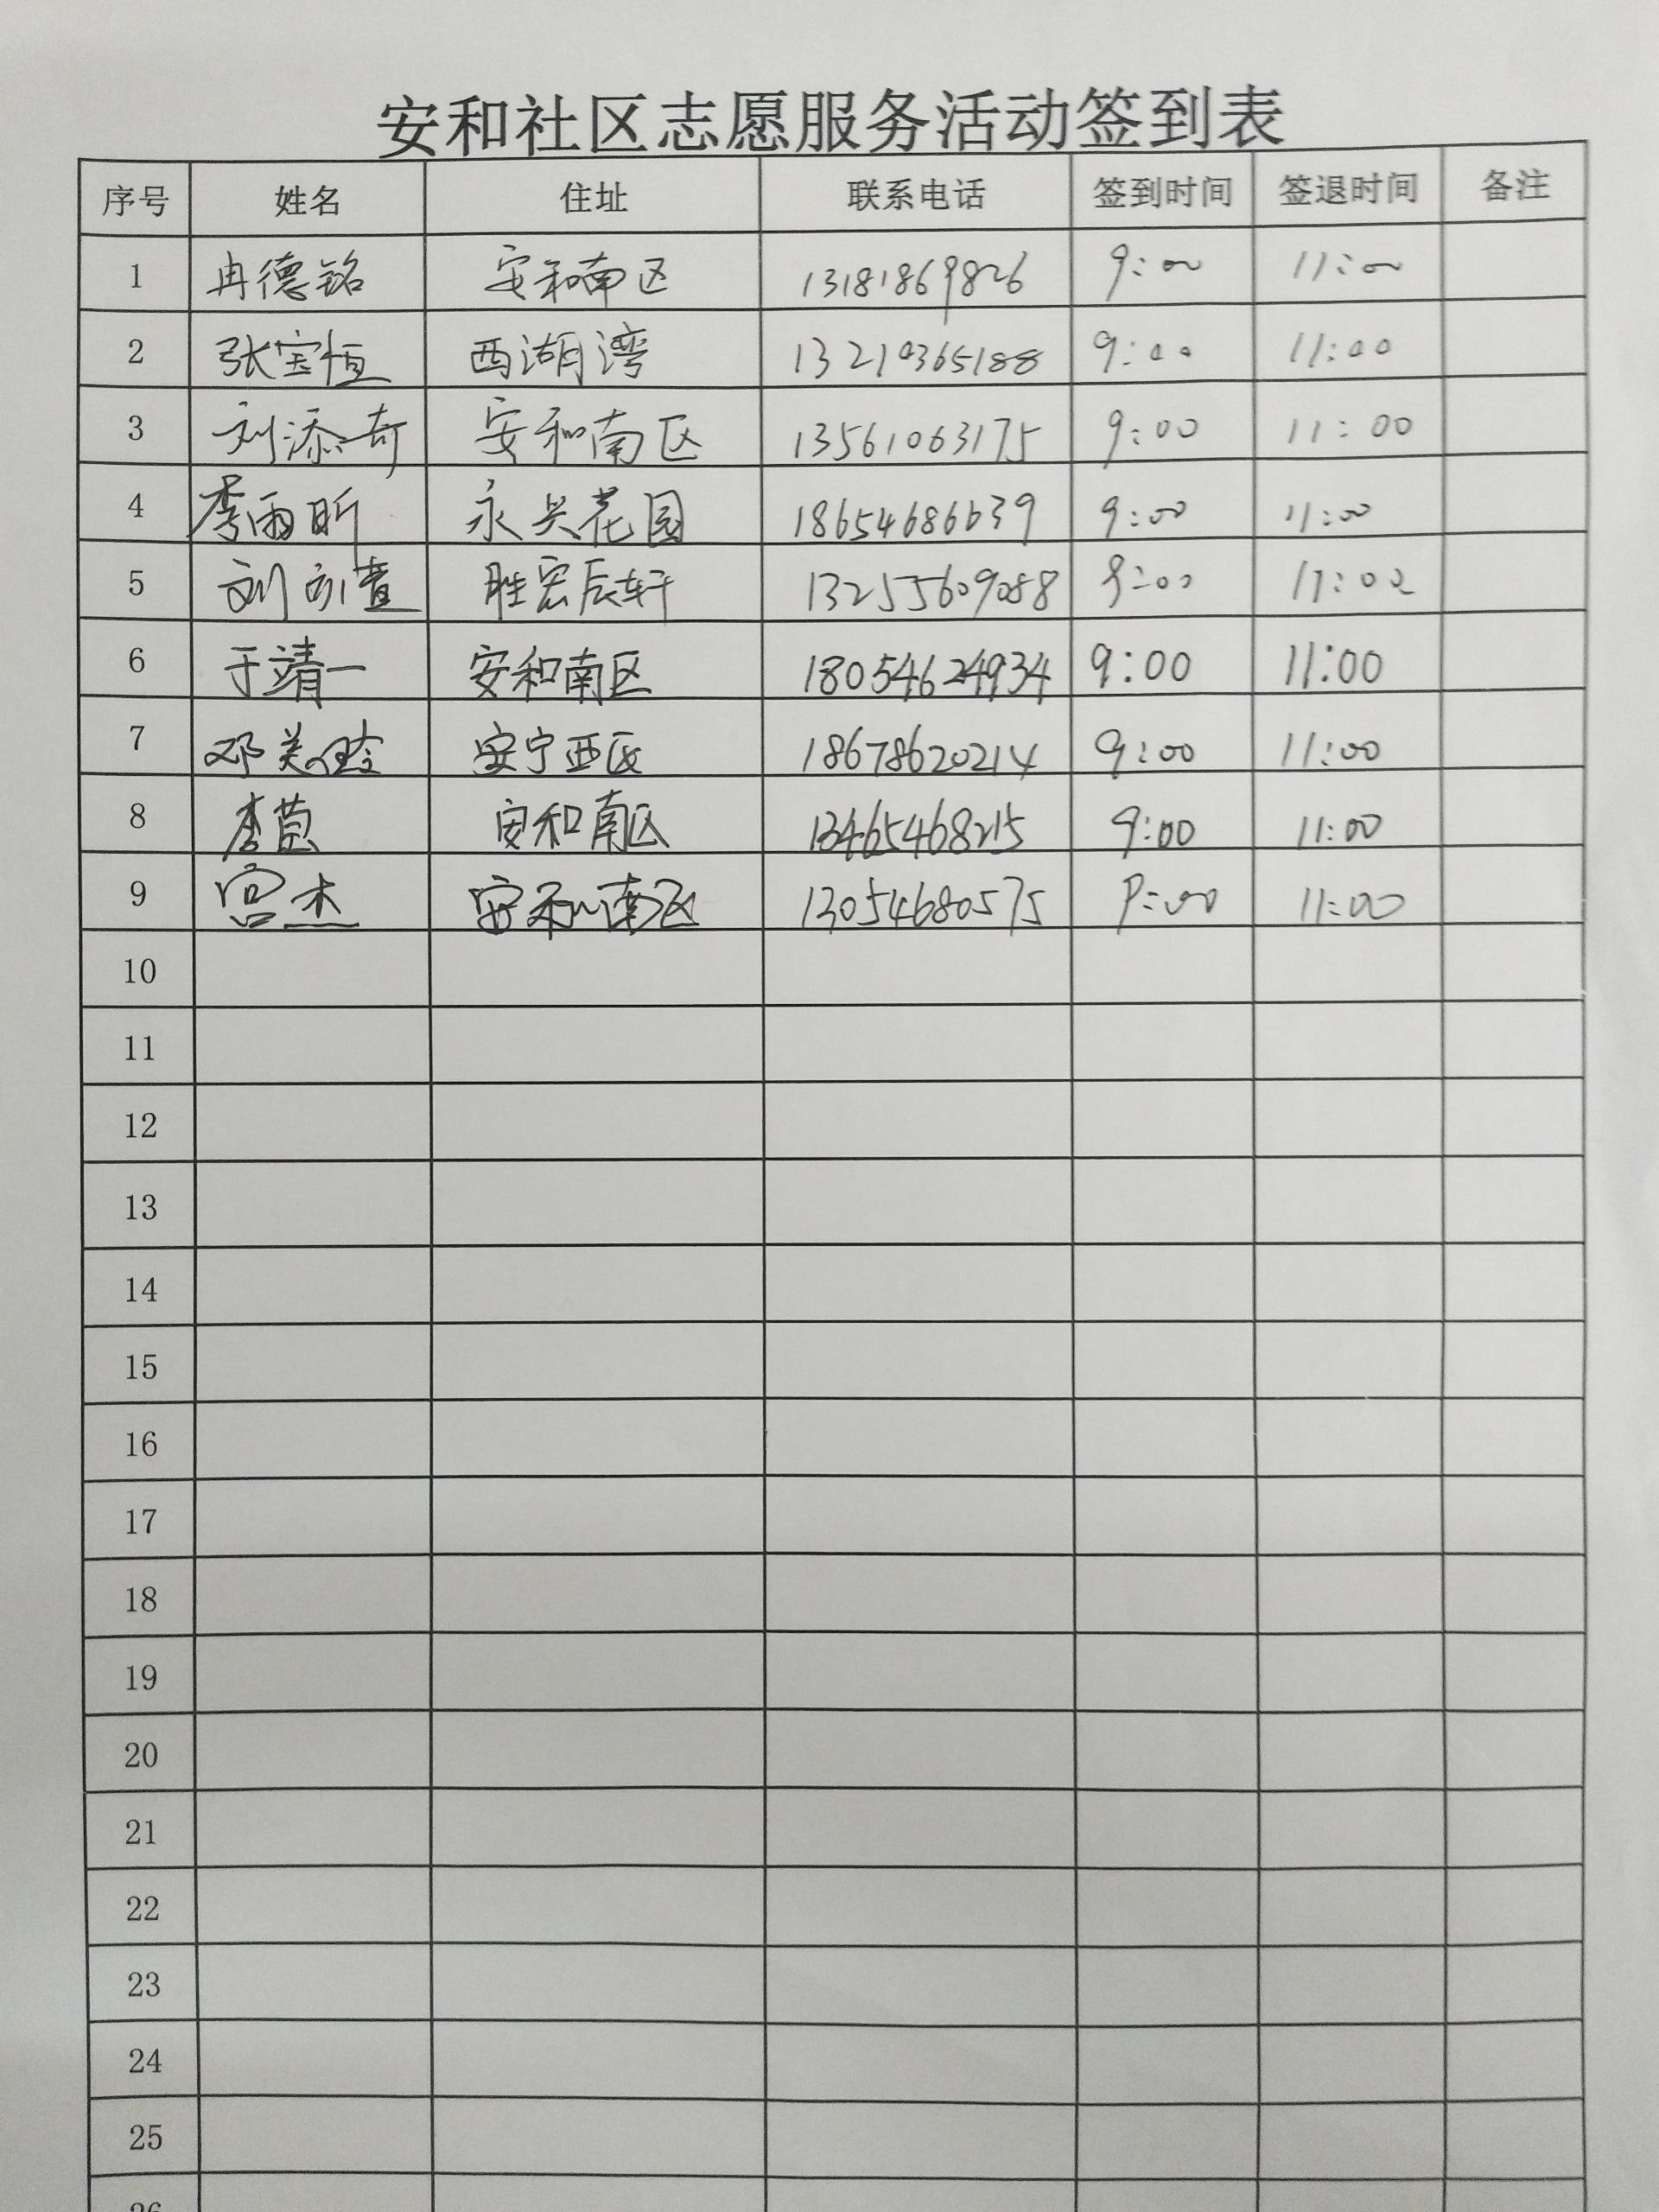 安和社区志愿服务活动签到表
序号 姓名 住址 联系电话 签到时间 签退时间 备注
1 冉德铭 安和南区 13181869826 9:00 11:00
2 张宝恒 西湖湾 13210365188 9:00 11:00
3 刘添奇 安和南区 13561063175 9:00 11:00
4 李雨昕 永兴花园 18654686639 9:00 11:00
5 刘 胜宏辰轩 13255609088 9:00 11:00
6 于靖一 安和南区 18054624934 9:00 11:00
7 邓美玲 安宁西区 18678620214 9:00 11:00
8 李茵 安和南区 13465468215 9:00 11:00
9 宫杰 安和南区 13054680575 9:00 11:00
10
11
12
13
14
15
16
17
18
19
20
21
22
23
24
25
26